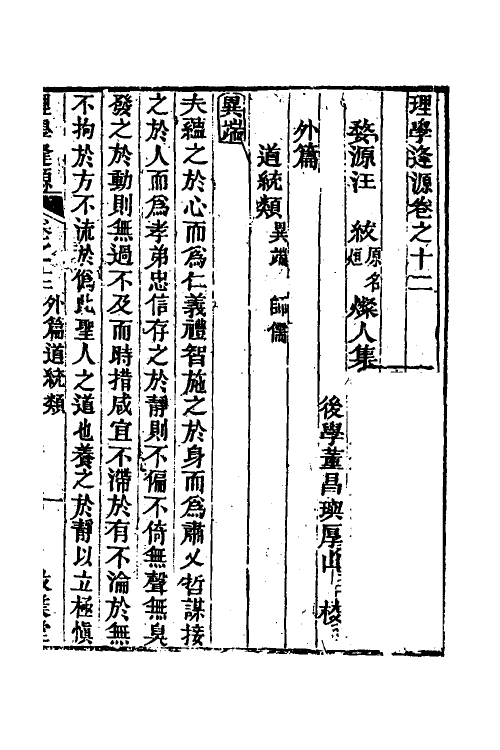 理學逢源卷之十二
婺源汪 紱原名烜燦人集
後學董昌璵厚山 校
外篇
道統類異端 師儒
異端
夫蘊之於心而爲仁義禮智施之於身而爲肅乂哲謀接
之於人而爲孝弟忠信存之於靜則不偏不倚無聲無臭
發之於動則無過不及而時措咸宜不滯於有不淪於無
不拘於方不流於僞此聖人之道也養之於靜以立極愼
理學逢源 卷之十二外篇道統類 一